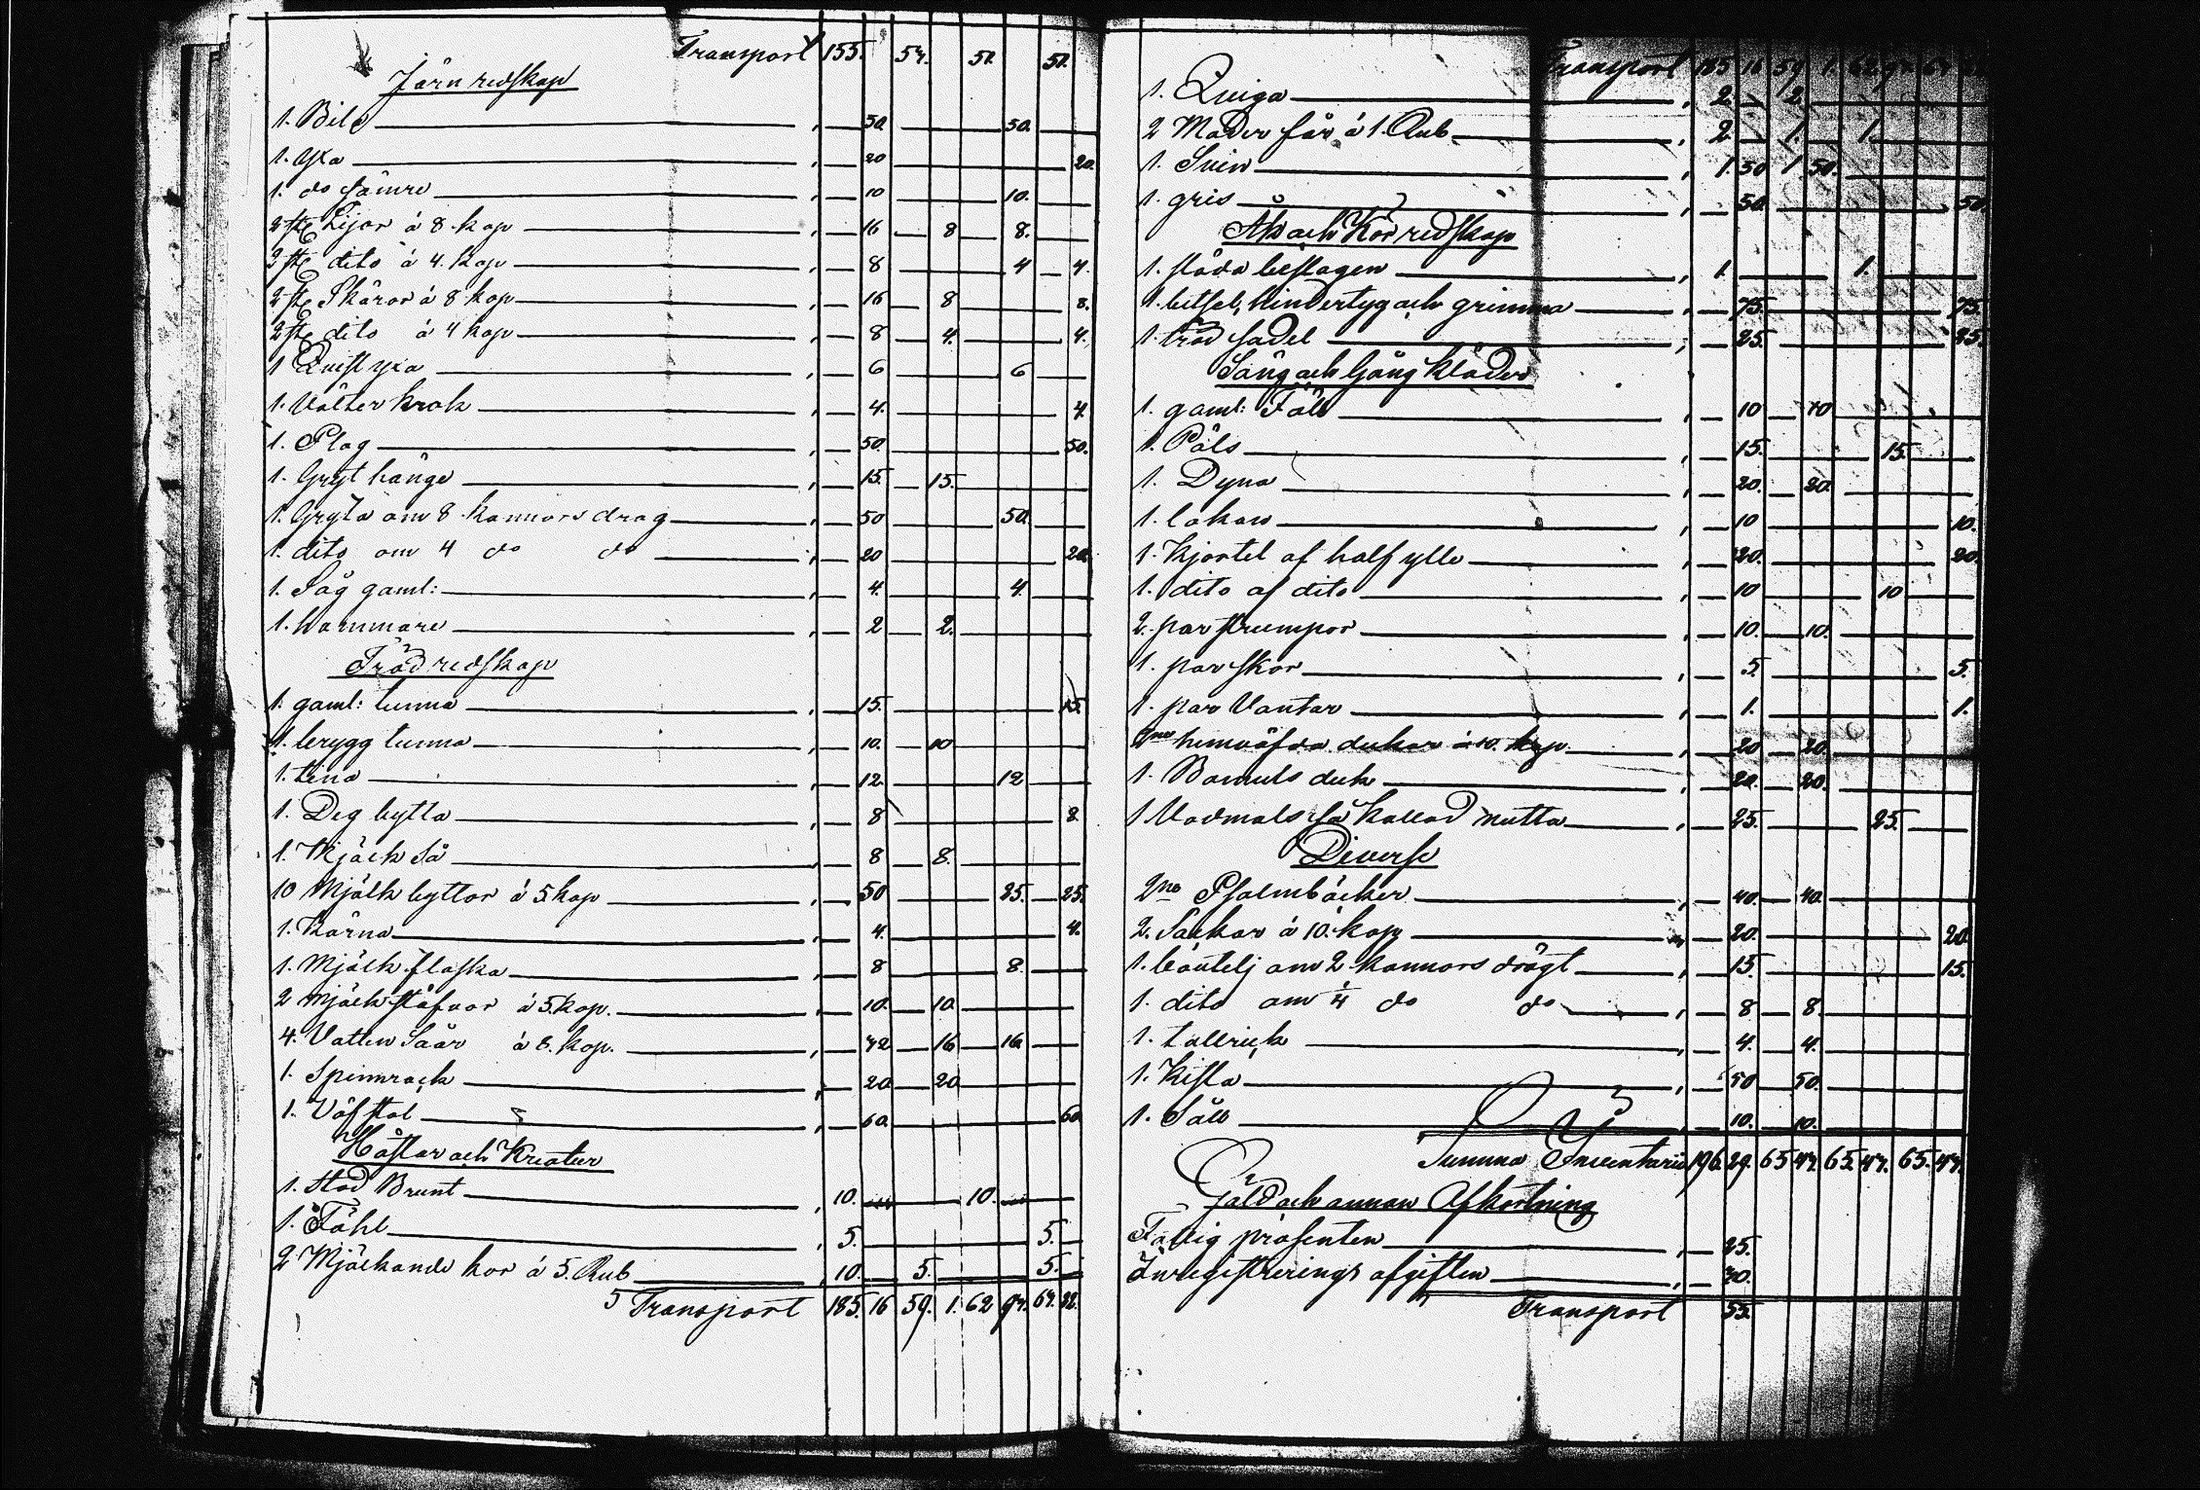 Transport 155. 54. 51. 51.
Järnredskap
1. Bila , 50. 50.
1. Yxa , 20 20.
1. do sämre , 10 10.
2 st Lijor á 8. kop , 16 8 8.
2 st dito á 4. kop , 8 4 4.
2 st Skäror á 8 kop , 16 8 8.
2 st dito á 4 kop , 8 4. 4.
1 Quist yxa , 6 6
1. Välter krok , 4. 4.
1. Plog , 50. 50.
1. Gryt hänge , 15. 15.
1. Gryta om 8. kannors drag , 50 50.
1. dito om 4 do do , 20 20.
1. Såg gaml: , 4. 4.
1. hammare , 2 2.
Trädredskap
1. gaml: tunna , 15. 15.
1. brygg tunna , 10. 10
1. tina , 12. 12
1. Deg bytta , 8 8.
1. Mjölk Så , 8 8.
10 Mjölk byttor á 5. kop , 50 25. 25.
1. Kärna , 4. 4.
1. Mjölk flaska , 8 8.
2 Mjölk stäfvor á 5. kop. , 10. 10.
4. Vatten Såar á 8. kop. , 32 16 16
1. Spinnrock , 20 20
1. Väfstol , 60. 60.
Hästar och Kreatur
1. Stod Brunt , 10. 10.
1. Fåhl , 5. 5.
2 Mjölkande kor á 5. Rub , 10. 5. 5.
Transport 185. 16 59. 1. 62 94. 64. 22.
Transport 185 16 59 1. 62 94 64 22
1. Quiga , 2. 2.
2 Moder får á 1. Rub. , 2. 1. 1.
1. Svin , 1. 50 1 50.
1. gris , 50. 50.
Åk och Kör redskap
1. släda beslagen , 1. 1.
1. betsel, hindertyg och grimma , 75. 75.
1. träd sadel , 25. 25.
Säng och Gång kläder
1. gaml: Fäll , 10 10
1. Päls , 15. 15.
1. Dyna , 20. 20.
1. lakan , 10 10.
1. Kjortel af half ylle , 20. 20.
1. dito af dito , 10 10
2. par strumpor , 10. 10.
1. par skor , 5. 5.
1. par Vantar , 1. 1.
2ne hemväfda dukar á 10. kop. , 20 20.
1. Bomuls duk , 20. 20.
1 Vadmals så kallad mutta , 25. 25.
Diverse
2ne Psalmböcker , 40. 40.
2. Säckar á 10. kop , 20. 20
1. boutelj om 2 kannors drägt , 15. 15.
1. dito om 1/4 do do , 8 8.
1. tallrick , 4. 4.
1. Kista , 50 50.
1. Såll , 10. 10.
Summa Inventarie 196. 29. 65 47. 65. 47. 65. 47.
Gäld och annan Afkortning
Fattig procenten , 25.
Inregistrerings afgiften , 30.
Transport 55.